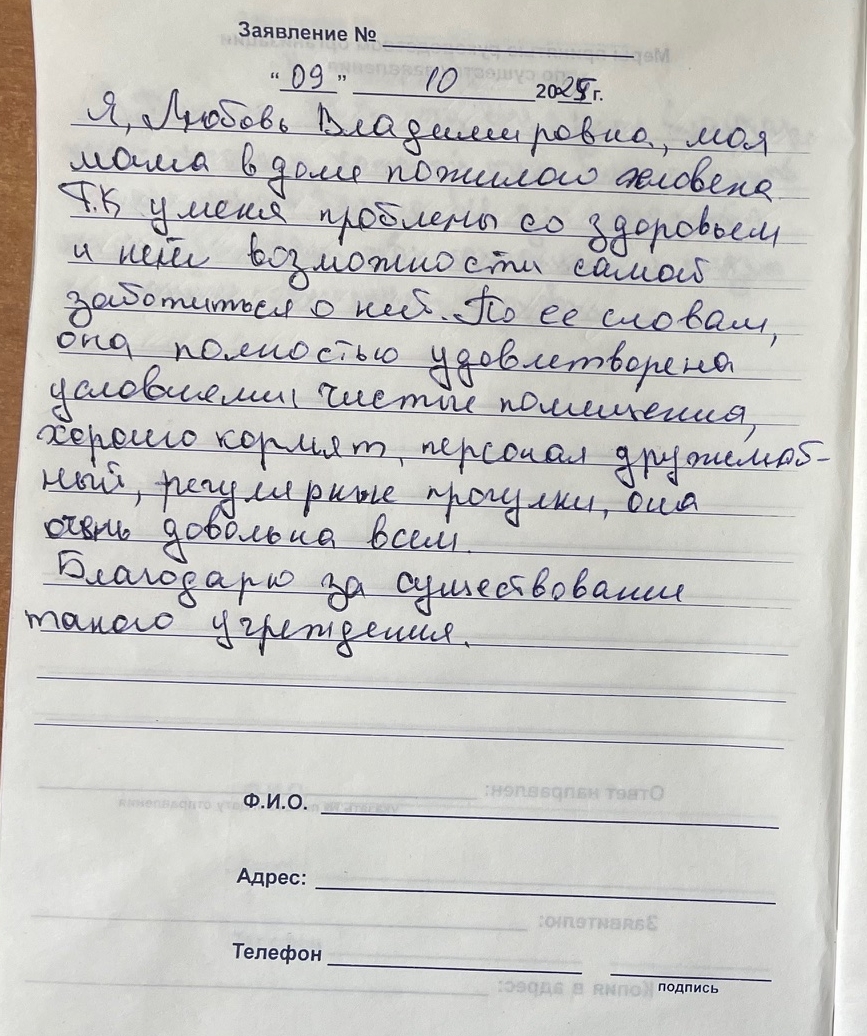 Заявление №
“ 09 ” 10 2025 г.
Я, Любовь Владимировна, моя
мама в доме пожилого человека
Т.К у меня проблемы со здоровьем
и нет возможности самой
заботиться о ней. По ее словам,
она полностью удовлетворена
условиями, чистые помещения,
хорошо кормят, персонал дружелюб-
ный, регулярные прогулки, она
очень довольна всем.
Благодарю за существование
такого учреждения.
Ф.И.О.
Адрес:
Телефон
подпись
Ответ направлен:
Заявителю:
Копия в адрес: